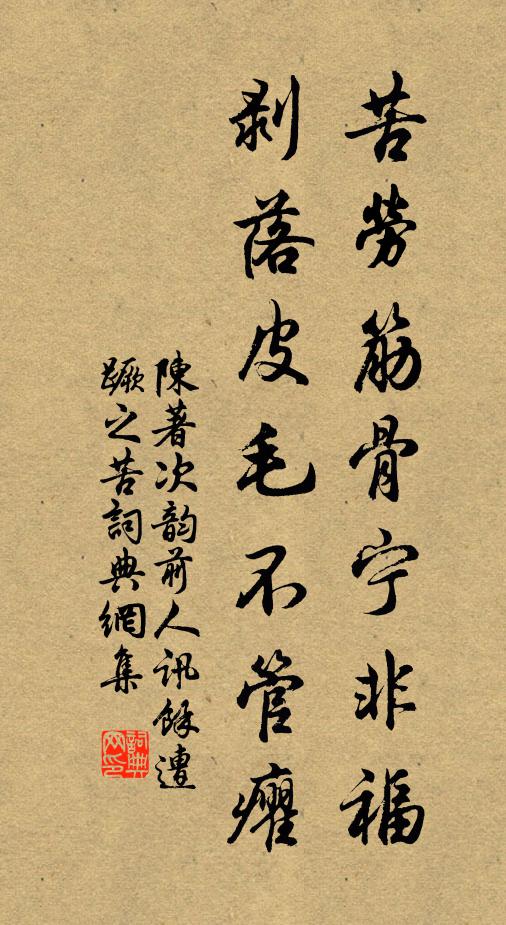 苦勞筋骨宁非福
剥落皮毛不管癯
陳著次韵前人訊餘遭
蹶之苦詞典網集
詞典網印